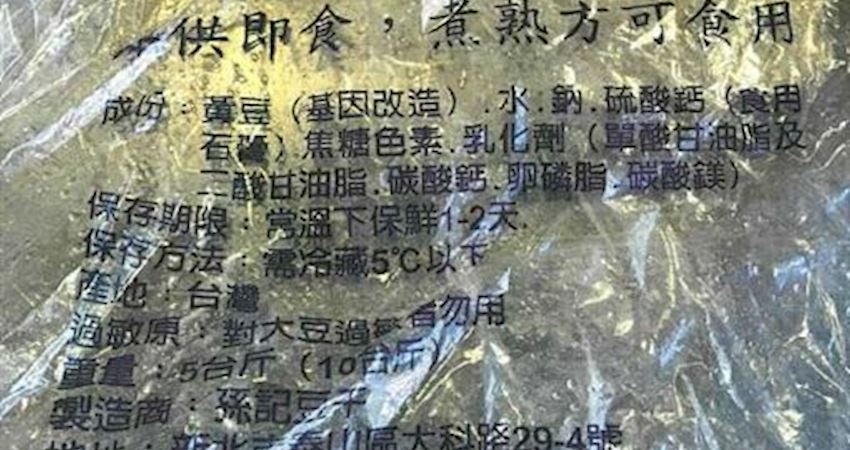 供即食，煮熟方可食用
成份：黃豆（基因改造）.水.鈉.硫酸鈣（食用
石膏）焦糖色素.乳化劑（單酸甘油脂及
二酸甘油脂.碳酸鈣.卵磷脂.碳酸鎂）
保存期限：常溫下保鮮1-2天.
保存方法：需冷藏5℃以下
產地：台灣
過敏原：對大豆過敏者勿用
重量：5台斤（10台斤）
製造商：孫記豆干
地址：新北市泰山區大科路29-4號